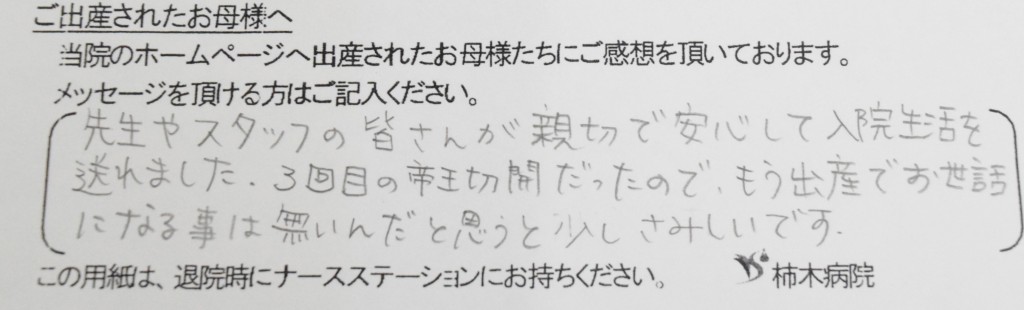 ご出産されたお母様へ
当院のホームページへ出産されたお母様たちにご感想を頂いております。
メッセージを頂ける方はご記入ください。
先生やスタッフの皆さんが親切で安心して入院生活を
送れました。3回目の帝王切開だったので、もう出産でお世話
になる事は無いんだと思うと少しさみしいです。
この用紙は、退院時にナースステーションにお持ちください。 柿木病院